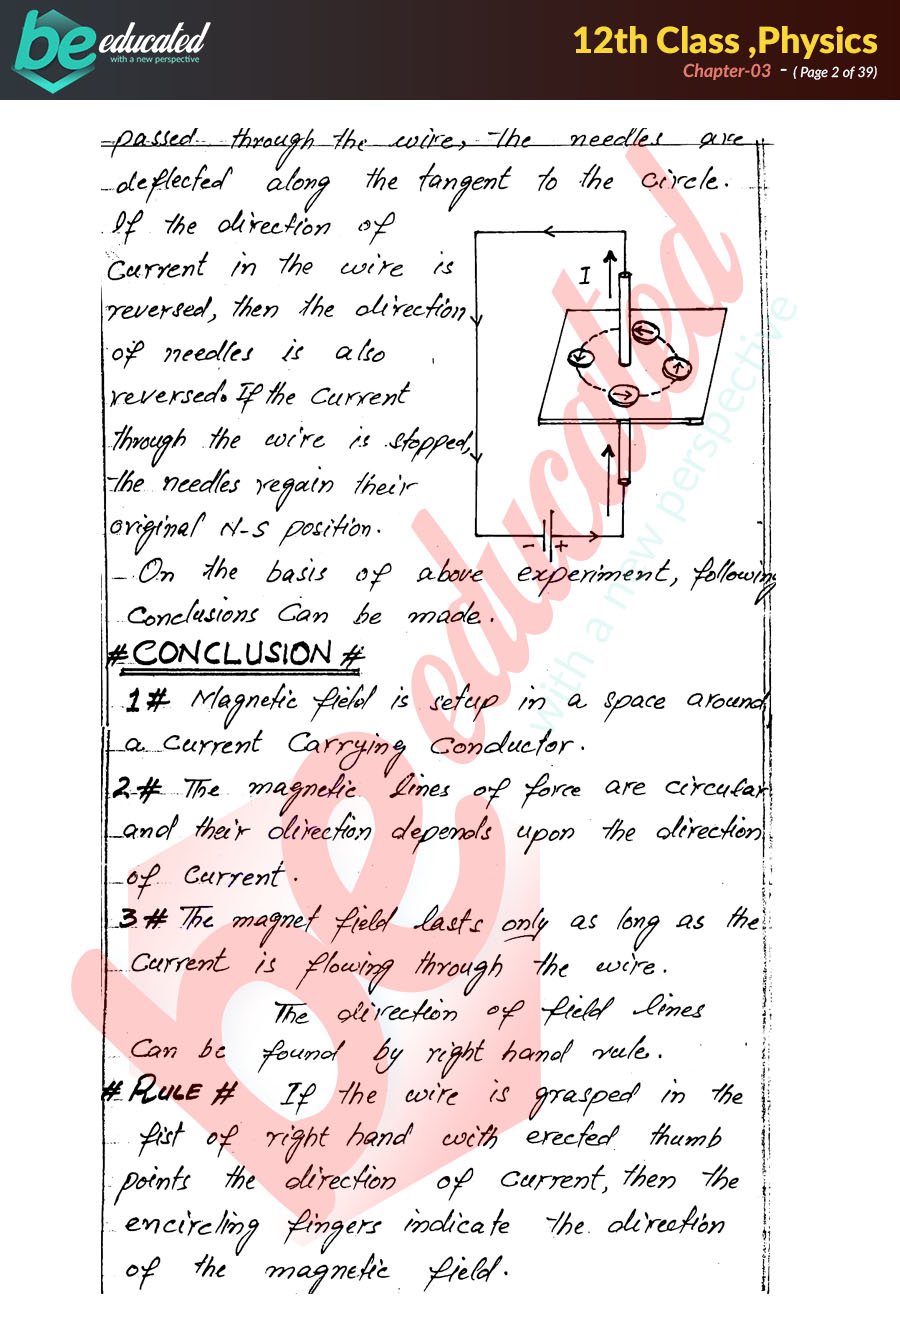 be educated
with a new perspective
12th Class ,Physics
Chapter-03 - ( Page 2 of 39)
passed through the wire, the needles are
deflected along the tangent to the circle.
If the direction of
Current in the wire is
reversed, then the direction
of needles is also
reversed. If the Current
through the wire is stopped,
the needles regain their
original N-S position.
I
- +
On the basis of above experiment, following
Conclusions Can be made.
# CONCLUSION #
1# Magnetic field is setup in a space around
a Current Carrying Conductor.
2# The magnetic lines of force are circular
and their direction depends upon the direction
of Current.
3# The magnet field lasts only as long as the
Current is flowing through the wire.
The direction of field lines
Can be found by right hand rule.
# RULE # If the wire is grasped in the
fist of right hand with erected thumb
points the direction of Current, then the
encircling fingers indicate the direction
of the magnetic field.
be educated
with a new perspective